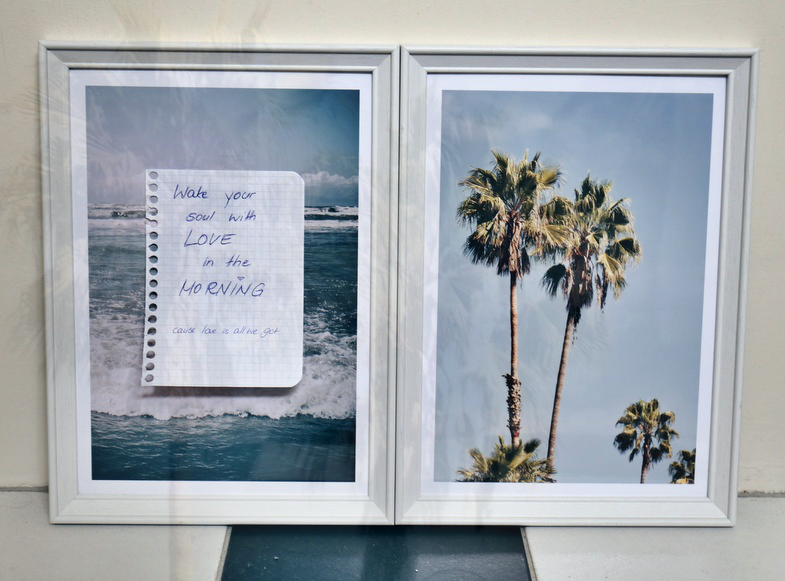 Wake your
soul with
LOVE
in the
MORNING
cause love is all we got